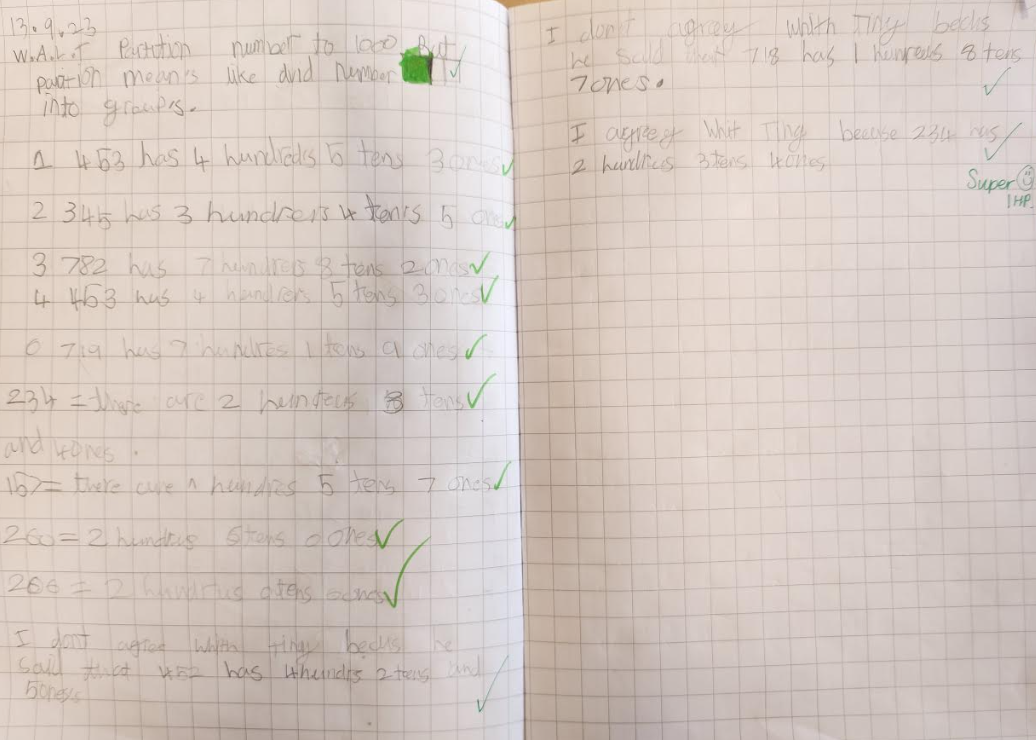 13.9.23
W.A.L.T Partation number to 1000 But
partion means like dvid number
into groups.
1 453 has 4 hundreds 5 tens 3 ones
2 345 has 3 hundrers 4 tens 5 ones
3 782 has 7 hundrers 8 tens 2 ones
4 453 has 4 hundrers 5 tens 3 ones
0 719 has 7 hundres 1 tens 9 ones
234 = there are 2 hundreus 3 tens
and 4 ones.
157 = there are hundres 5 tens 7 ones
260 = 2 hundrus 6 tens 0 ones
266 = 2 hundrus tens ones
I dont agree whith tiny becus he
said that 452 has 4 hundrs 2 tens and
5 ones
I don't agrey whith Tiny becus
he said that 718 has 1 hunreus 8 tens
7 ones.
I agrey whit Tiny becuse 234 has
2 hundrus 3 tens 4 ones
Super
1 HP.